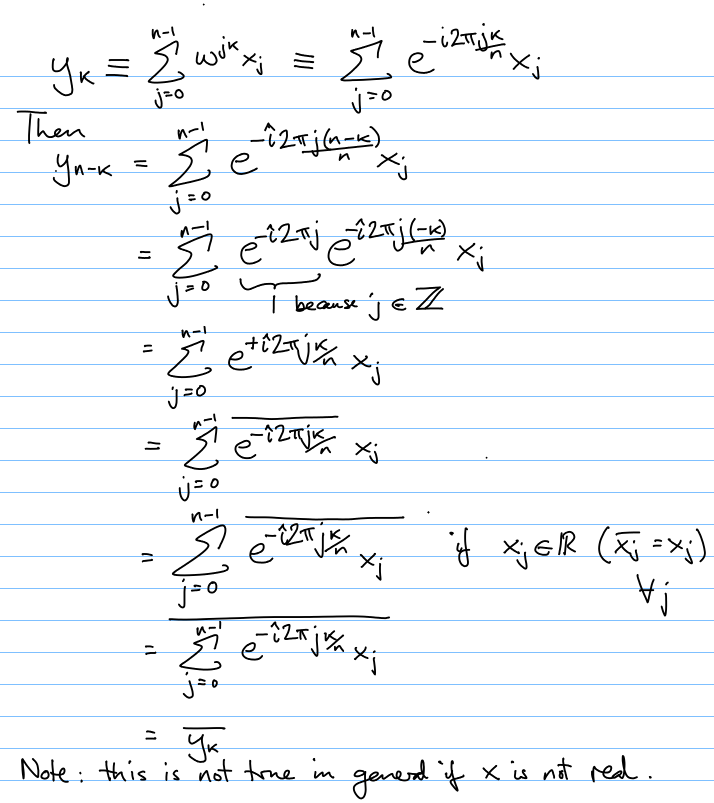 y_k ≡ ∑_{j=0}^{n-1} ω^{jk} x_j ≡ ∑_{j=0}^{n-1} e^{-i2πjk/n} x_j
Then
y_{n-k} = ∑_{j=0}^{n-1} e^{-i2πj(n-k)/n} x_j
= ∑_{j=0}^{n-1} e^{-i2πj} e^{-i2πj(-k)/n} x_j
1 because j ∈ ℤ
= ∑_{j=0}^{n-1} e^{+i2πjk/n} x_j
= ∑_{j=0}^{n-1} \overline{e^{-i2πjk/n}} x_j
= ∑_{j=0}^{n-1} \overline{e^{-i2πjk/n} x_j} if x_j ∈ ℝ (\overline{x_j} = x_j)
∀j
= \overline{∑_{j=0}^{n-1} e^{-i2πjk/n} x_j}
= \overline{y_k}
Note: this is not true in general if x is not real.